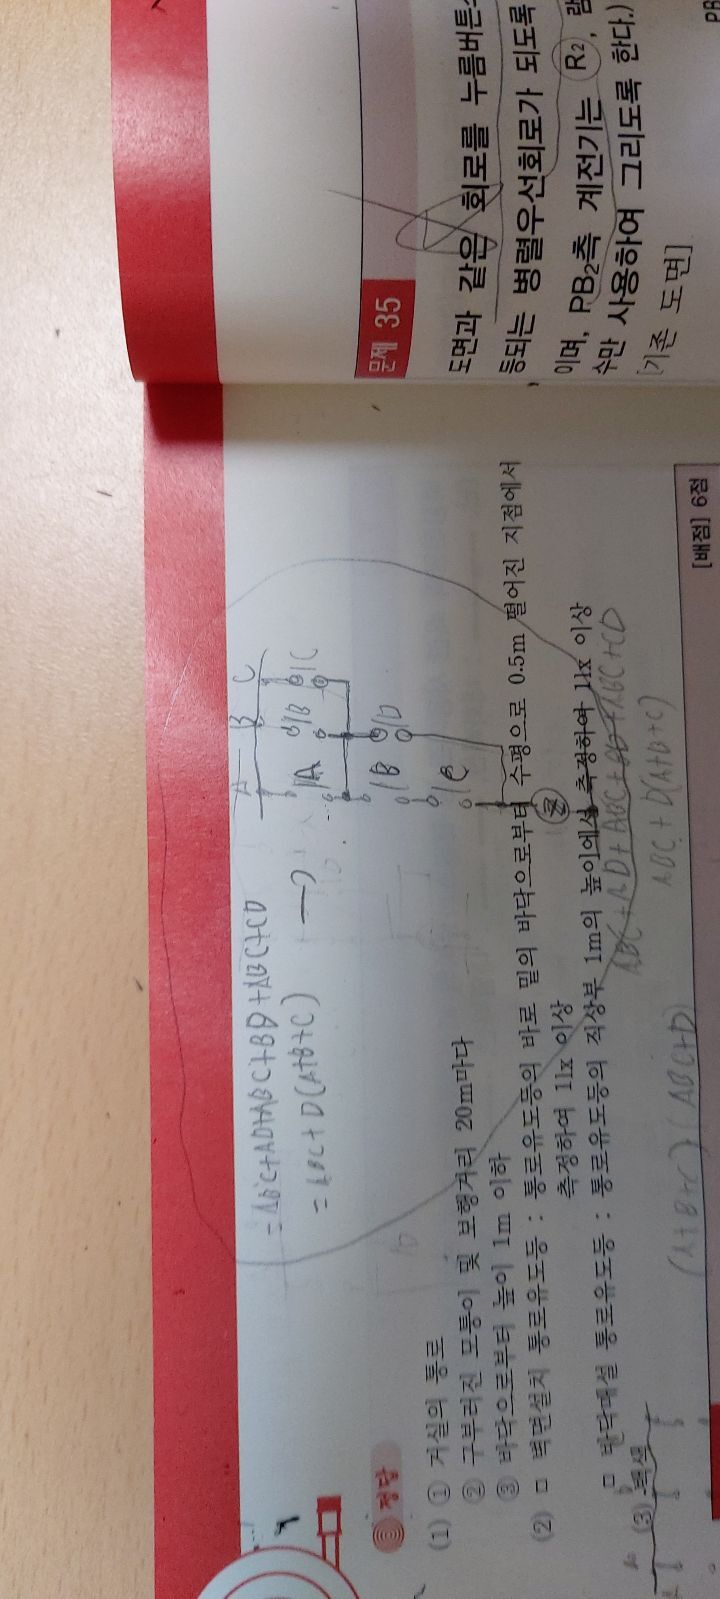 = ABC+AD+ABC+BD+ABC+CD
= ABC + D(A+B+C)
A B C
A B C
B D
C
정답
(1) ① 거실의 통로
② 구부러진 모퉁이 및 보행거리 20m마다
③ 바닥으로부터 높이 1m 이하
(2) □ 벽면설치 통로유도등 : 통로유도등의 바로 밑의 바닥으로부터 수평으로 0.5m 떨어진 지점에서
측정하여 1lx 이상
□ 바닥매설 통로유도등 : 통로유도등의 직상부 1m의 높이에서 측정하여 1lx 이상
(3) 백색
ABC+AD+ABC+BD+ABC+CD
ABC + D(A+B+C)
(A+B+C) (ABC+D)
[배점] 6점
문제 35
도면과 같은 회로를 누름버튼
등되는 병렬우선회로가 되도록
이며, PB₂측 계전기는 R₂, 램
수만 사용하여 그리도록 한다.)
[기존 도면]
PB